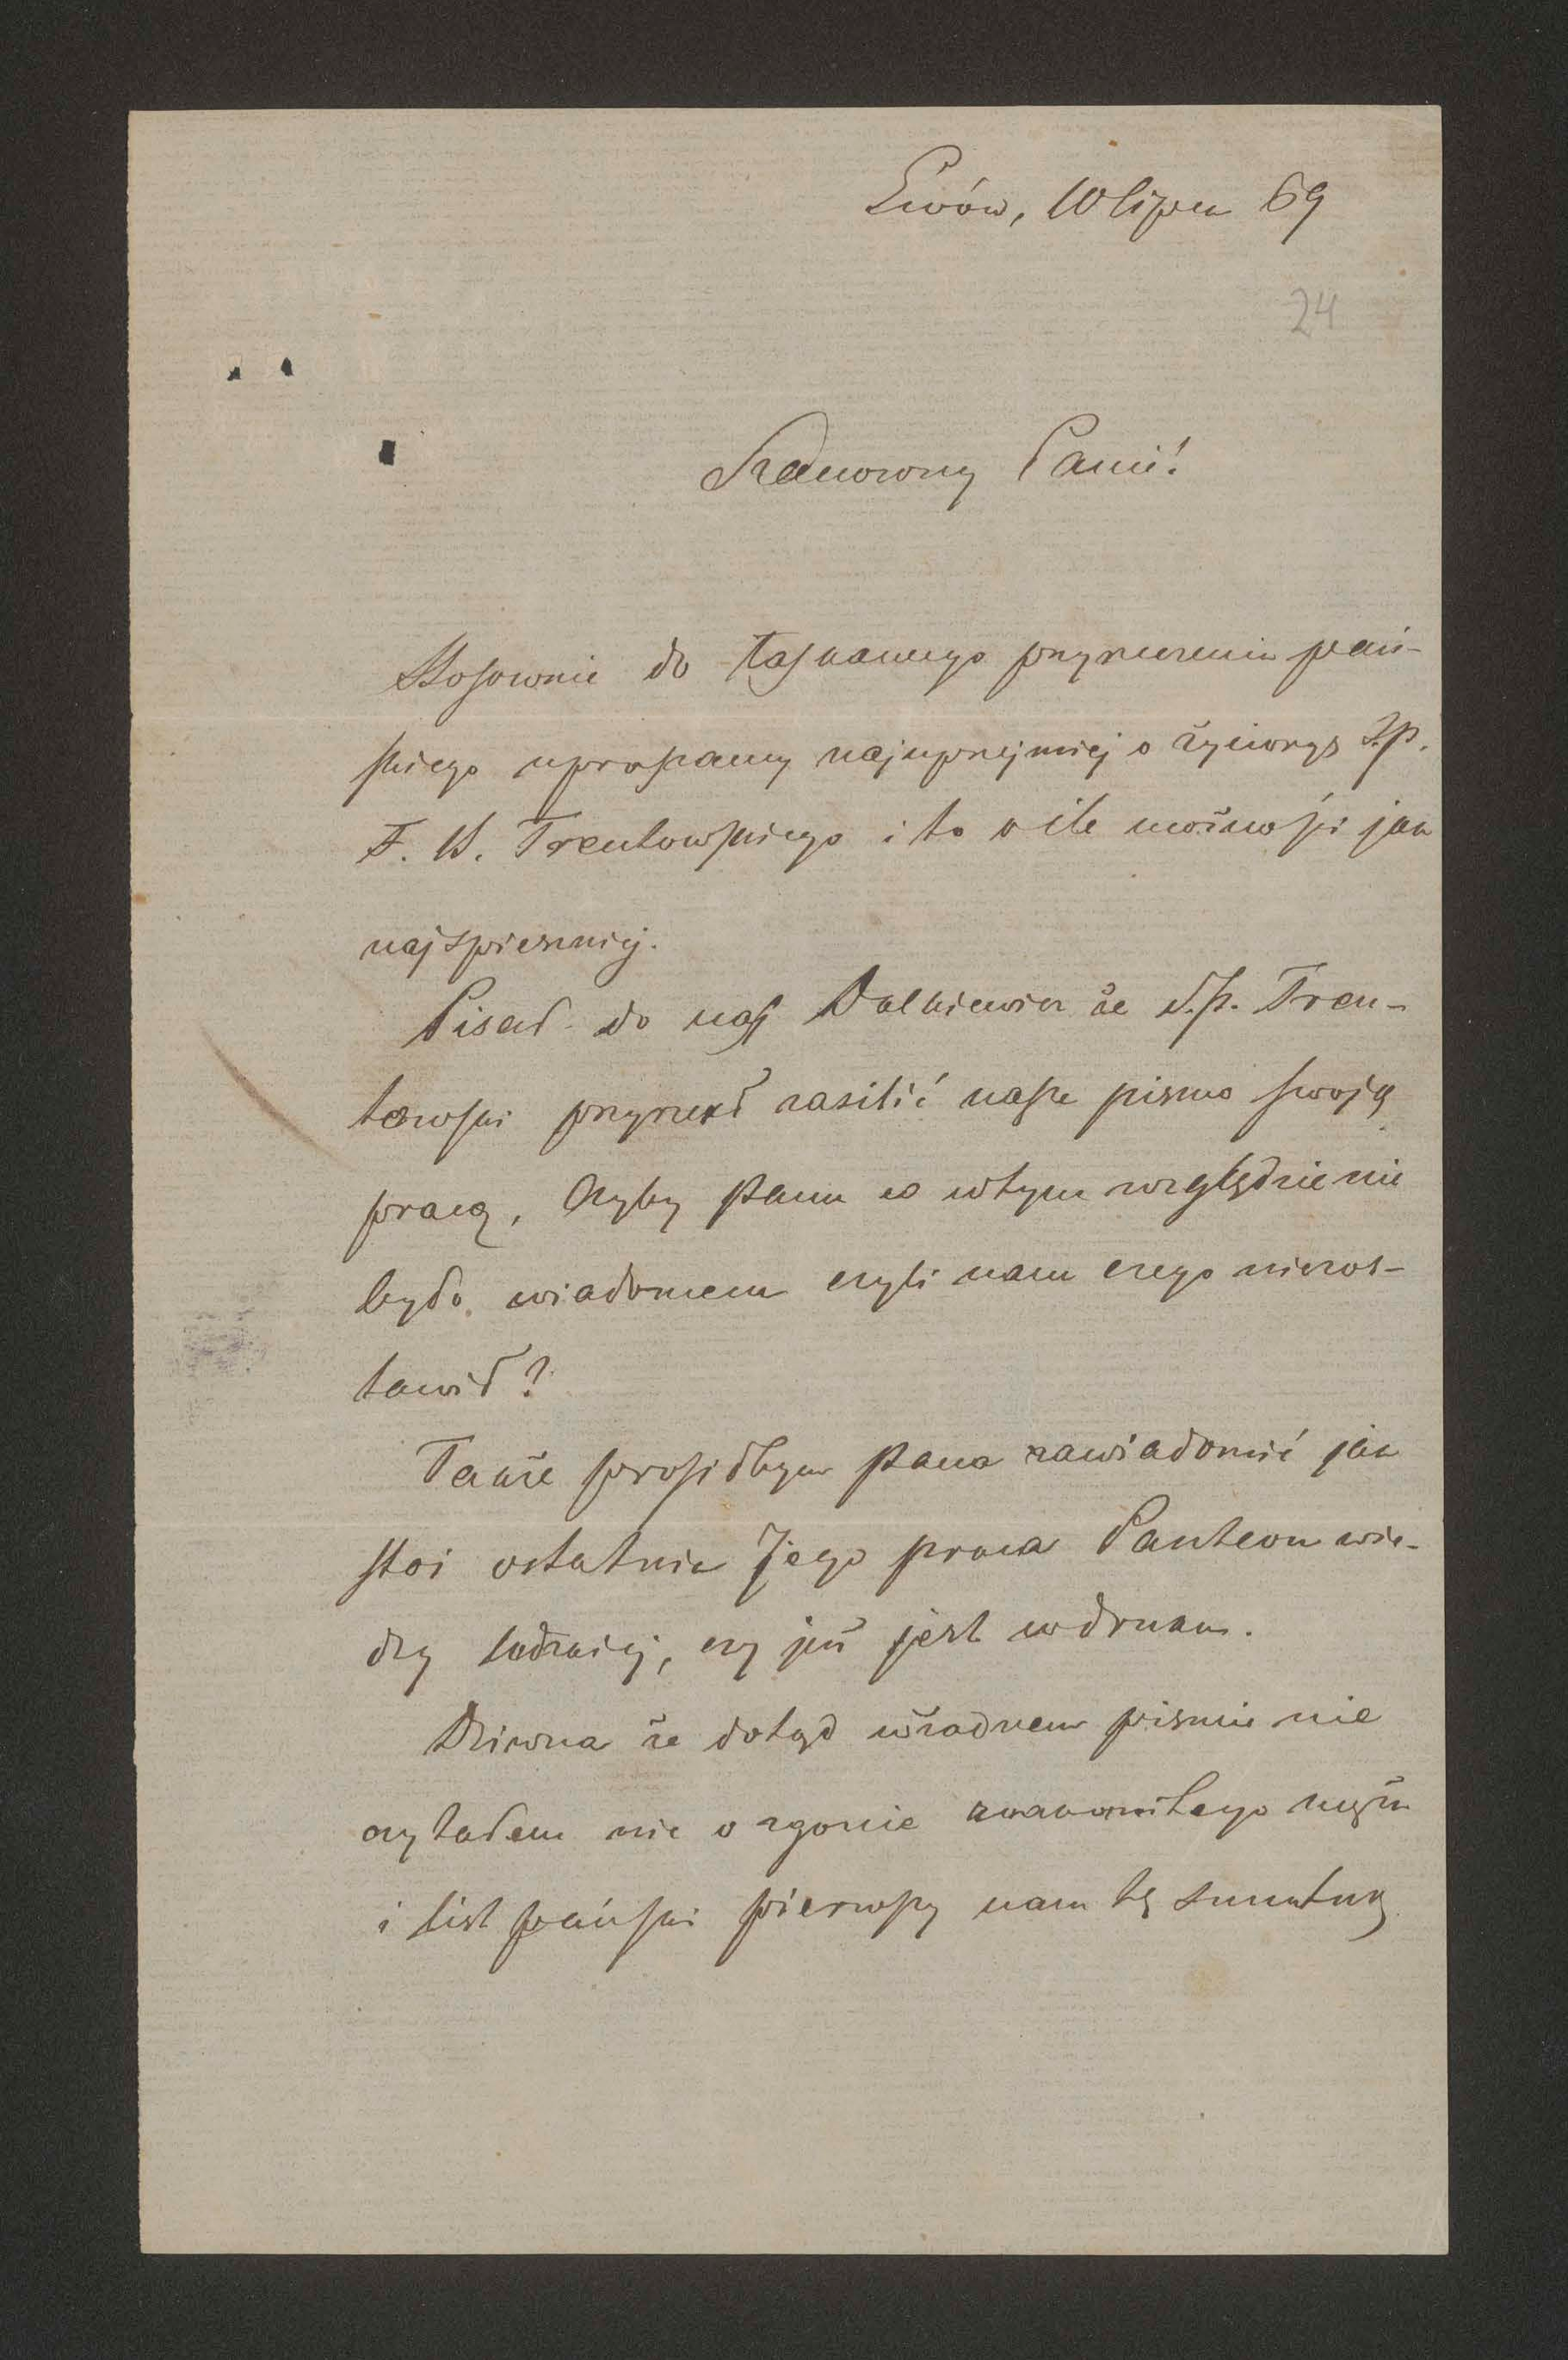 Lwów, 10 lipca 69
24
Szanowny Panie!
Stosownie do łaskawego przyrzeczenia pań-
skiego upraszamy najuprzejmiej o życiorys ś.p.
F. B. Trentowskiego i to o ile możności jak
najspieszniej.
Pisał do nas Walkiewicz że ś.p. Tren-
towski przyrzekł zasilić nasze pismo swoją
pracą, czyby Panu w tym względzie nie
było wiadomem czyli nam czego niezos-
tawił?
Także prosiłbym Pana zawiadomić jak
stoi ostatnia Jego praca Panteon wie-
dzy ludzkiej, czy już jest w druku.
Dziwna że dotąd w żadnem piśmie nie
czytałem nic o zgonie znakomitego męża
i list pański pierwszy nam tę smutną